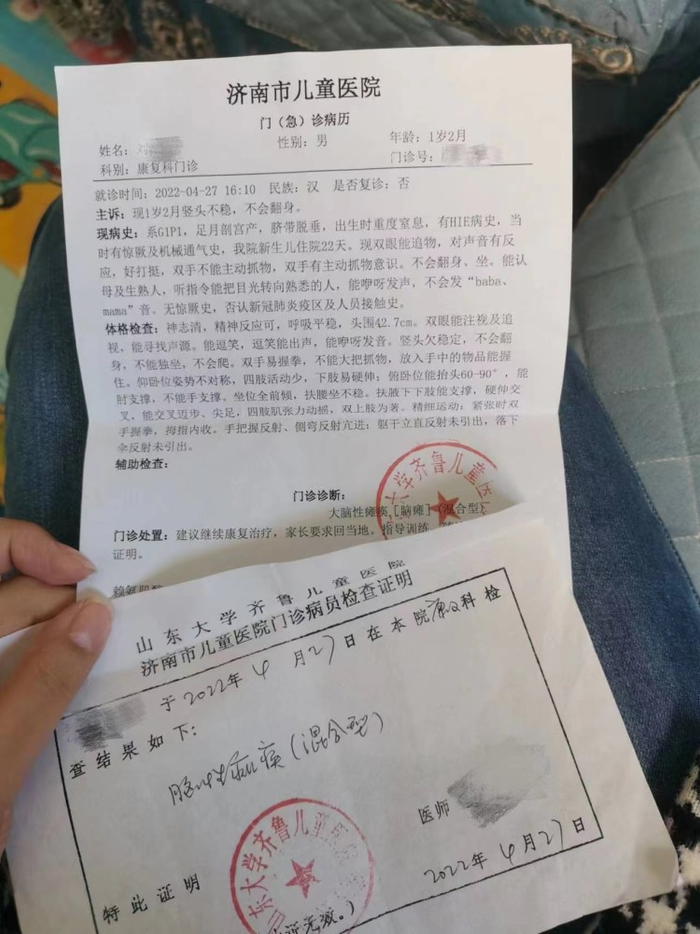 济南市儿童医院
门（急）诊病历
姓名：刘
性别：男
年龄：1岁2月
科别：康复科门诊
门诊号：
就诊时间：2022-04-27 16:10 民族：汉 是否复诊：否
主诉：现1岁2月竖头不稳，不会翻身。
现病史：系G1P1，足月剖宫产，脐带脱垂，出生时重度窒息，有HIE病史，当
时有惊厥及机械通气史，我院新生儿住院22天。现双眼能追物，对声音有反
应，好打挺，双手不能主动抓物，双手有主动抓物意识。不会翻身、坐。能认
母及生熟人，听指令能把目光转向熟悉的人，能咿呀发声，不会发“baba、
mama”音。无惊厥史，否认新冠肺炎疫区及人员接触史。
体格检查：神志清，精神反应可，呼吸平稳，头围42.7cm。双眼能注视及追
视，能寻找声源。能逗笑，逗笑能出声，能咿呀发音。竖头欠稳定，不会翻
身，不能独坐，不会爬。双手易握拳，不能大把抓物，放入手中的物品能握
住。仰卧位姿势不对称，四肢活动少，下肢易硬伸；俯卧位能抬头60-90°，能
肘支撑，不能手支撑。坐位全前倾，扶腰坐不稳。扶腋下下肢能支撑，硬伸交
叉，能交叉迈步、尖足，四肢肌张力动摇，双上肢为著。精细运动：紧张时双
手握拳，拇指内收。手把握反射、侧弯反射亢进；躯干立直反射未引出，落下
伞反射未引出。
辅助检查：
门诊诊断：
大脑性瘫痪[脑瘫]（混合型）
门诊处置：建议继续康复治疗，家长要求回当地。指导训练，
证明。
大学齐鲁儿童医
山东大学齐鲁儿童医院
济南市儿童医院门诊病员检查证明
于2022年4月27日在本院康复科检
查结果如下：
脑性瘫痪（混合型）
医师
特此证明
2022年4月27日
东大学齐鲁儿童医院
无效。）